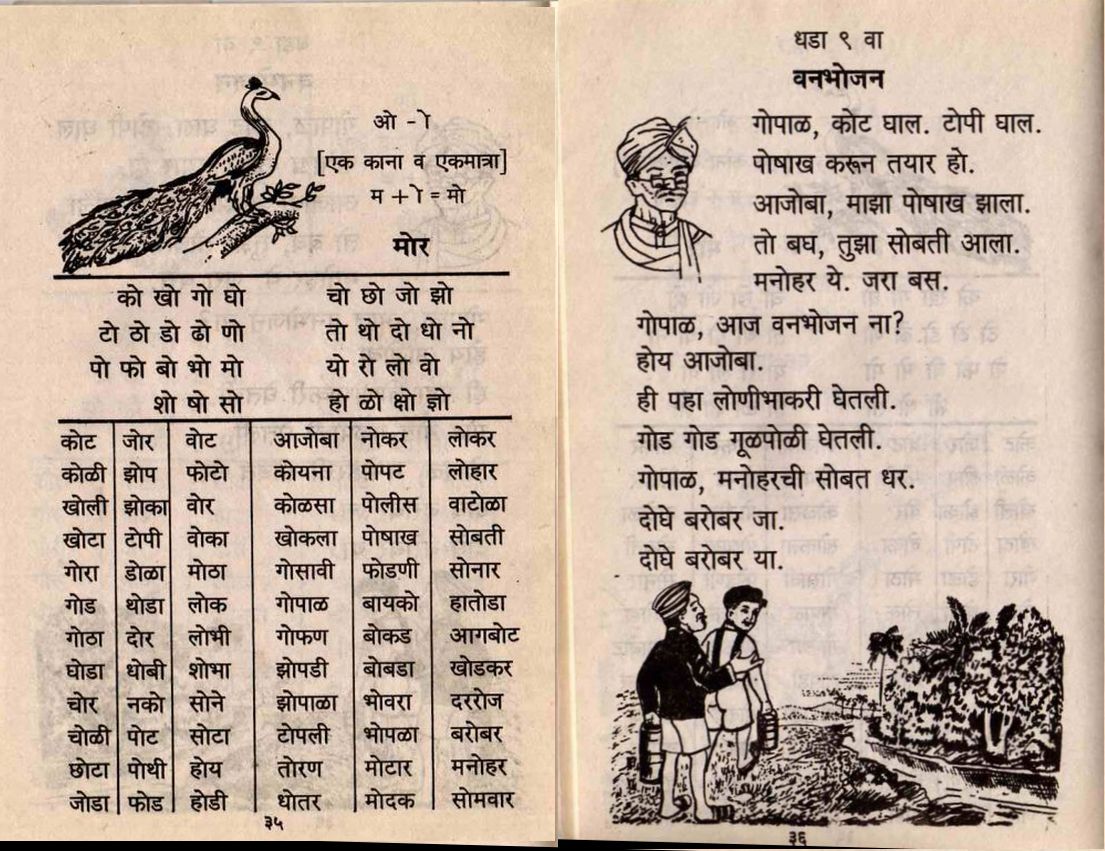 ओ - ो
[एक काना व एकमात्रा]
म + ो = मो
मोर
को खो गो घो चो छो जो झो
टो ठो डो ढो णो तो थो दो धो नो
पो फो बो भो मो यो रो लो वो
शो षो सो हो ळो क्षो ज्ञो
कोट जोर वोट आजोबा नोकर लोकर
कोळी झोप फोटो कोयना पोपट लोहार
खोली झोका वोर कोळसा पोलीस वाटोळा
खोटा टोपी वोका खोकला पोषाख सोबती
गोरा डोळा मोठा गोसावी फोडणी सोनार
गोड थोडा लोक गोपाळ बायको हातोडा
गोठा दोर लोभी गोफण बोकड आगबोट
घोडा धोबी शोभा झोपडी बोबडा खोडकर
चोर नको सोने झोपाळा भोवरा दररोज
चोळी पोट सोटा टोपली भोपळा बरोबर
छोटा पोथी होय तोरण मोटार मनोहर
जोडा फोड होडी धोतर मोदक सोमवार
३५
धडा ९ वा
वनभोजन
गोपाळ, कोट घाल. टोपी घाल.
पोषाख करून तयार हो.
आजोबा, माझा पोषाख झाला.
तो बघ, तुझा सोबती आला.
मनोहर ये. जरा बस.
गोपाळ, आज वनभोजन ना?
होय आजोबा.
ही पहा लोणीभाकरी घेतली.
गोड गोड गूळपोळी घेतली.
गोपाळ, मनोहरची सोबत धर.
दोघे बरोबर जा.
दोघे बरोबर या.
३६